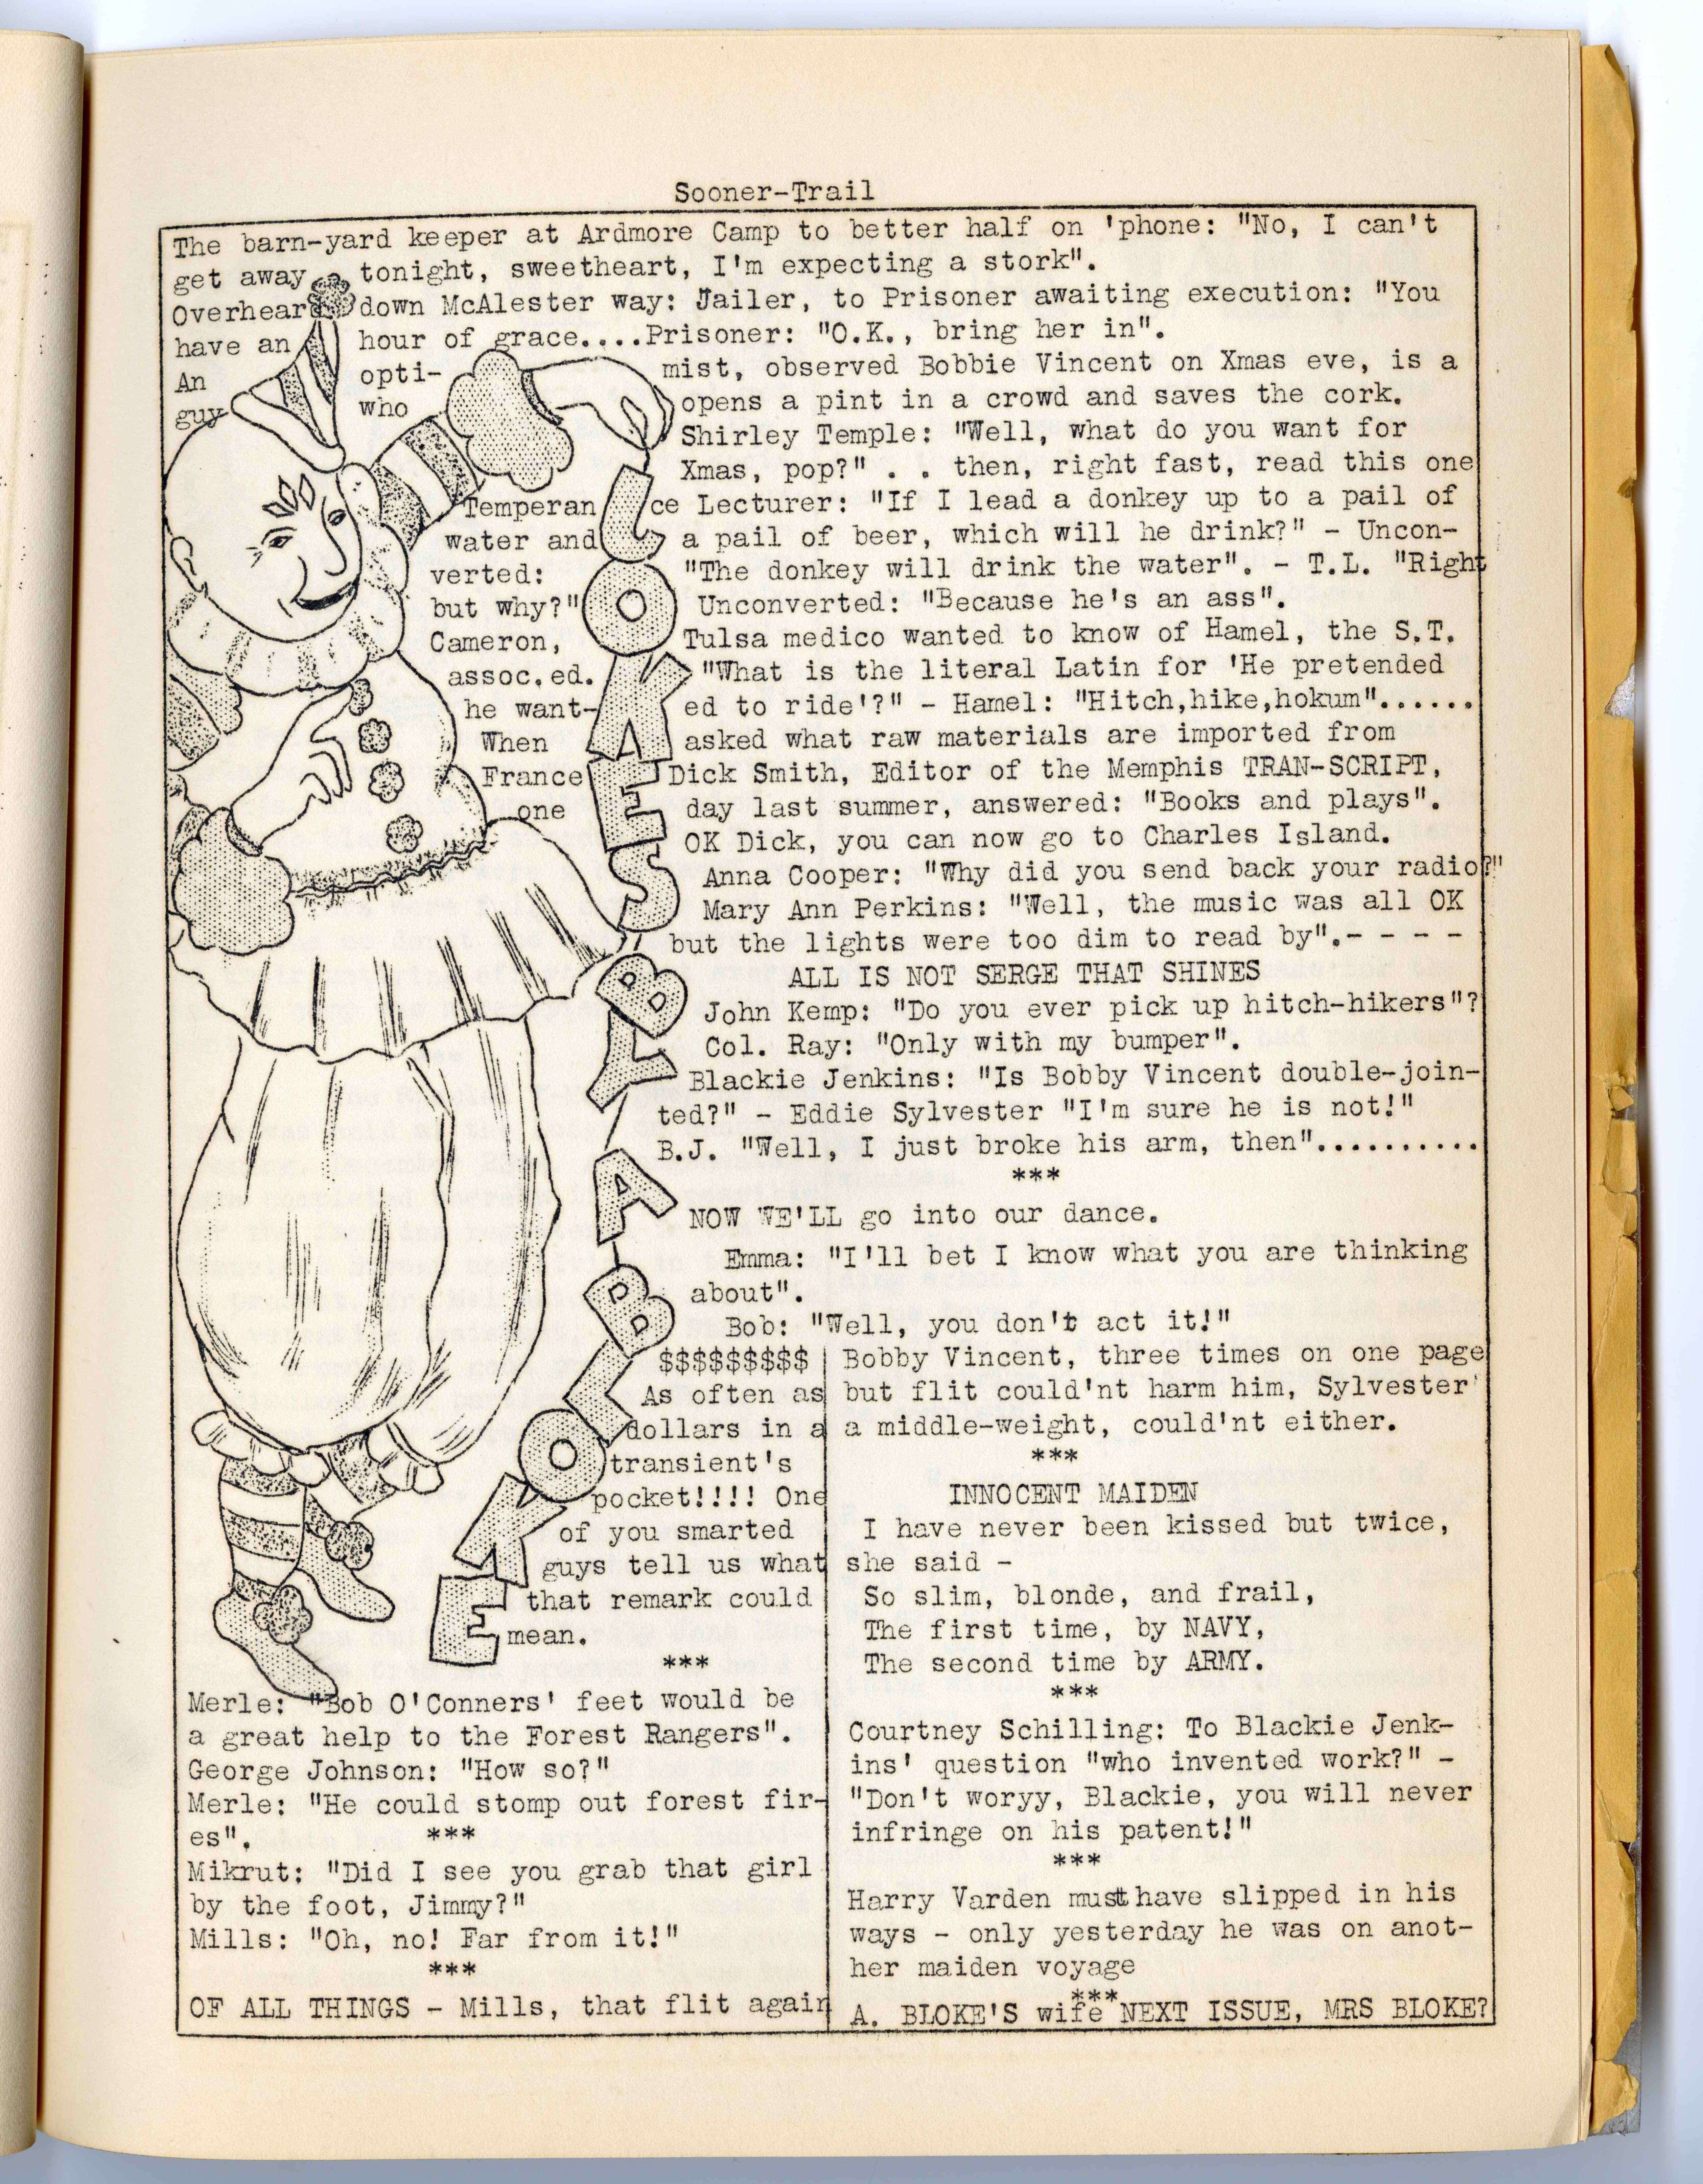 Sooner-Trail
The barn-yard keeper at Ardmore Camp to better half on 'phone: "No, I can't
get away tonight, sweetheart, I'm expecting a stork".
Overheard down McAlester way: Jailer, to Prisoner awaiting execution: "You
have an hour of grace....Prisoner: "O.K., bring her in".
An opti- mist, observed Bobbie Vincent on Xmas eve, is a
guy who opens a pint in a crowd and saves the cork.
Shirley Temple: "Well, what do you want for
Xmas, pop?" . . then, right fast, read this one
Temperan ce Lecturer: "If I lead a donkey up to a pail of
water and a pail of beer, which will he drink?" - Uncon-
verted: "The donkey will drink the water". - T.L. "Right
but why?" Unconverted: "Because he's an ass".
Cameron, Tulsa medico wanted to know of Hamel, the S.T.
assoc.ed. "What is the literal Latin for 'He pretended
he want- ed to ride'?" - Hamel: "Hitch,hike,hokum"......
When asked what raw materials are imported from
France Dick Smith, Editor of the Memphis TRAN-SCRIPT,
one day last summer, answered: "Books and plays".
OK Dick, you can now go to Charles Island.
Anna Cooper: "Why did you send back your radio?"
Mary Ann Perkins: "Well, the music was all OK
but the lights were too dim to read by".- - - -
ALL IS NOT SERGE THAT SHINES
John Kemp: "Do you ever pick up hitch-hikers"?
Col. Ray: "Only with my bumper".
Blackie Jenkins: "Is Bobby Vincent double-join-
ted?" - Eddie Sylvester "I'm sure he is not!"
B.J. "Well, I just broke his arm, then"..........
***
NOW WE'LL go into our dance.
Emma: "I'll bet I know what you are thinking
about".
Bob: "Well, you don't act it!"
JOKES BY A BLOKE
$$$$$$$$$
As often as
dollars in a
transient's
pocket!!!! One
of you smarted
guys tell us what
that remark could
mean.
***
Merle: "Bob O'Conners' feet would be
a great help to the Forest Rangers".
George Johnson: "How so?"
Merle: "He could stomp out forest fir-
es". ***
Mikrut: "Did I see you grab that girl
by the foot, Jimmy?"
Mills: "Oh, no! Far from it!"
***
OF ALL THINGS - Mills, that flit again
Bobby Vincent, three times on one page
but flit could'nt harm him, Sylvester'
a middle-weight, could'nt either.
***
INNOCENT MAIDEN
I have never been kissed but twice,
she said -
So slim, blonde, and frail,
The first time, by NAVY,
The second time by ARMY.
***
Courtney Schilling: To Blackie Jenk-
ins' question "who invented work?" -
"Don't woryy, Blackie, you will never
infringe on his patent!"
***
Harry Varden must have slipped in his
ways - only yesterday he was on anot-
her maiden voyage
***
A. BLOKE'S wife NEXT ISSUE, MRS BLOKE?